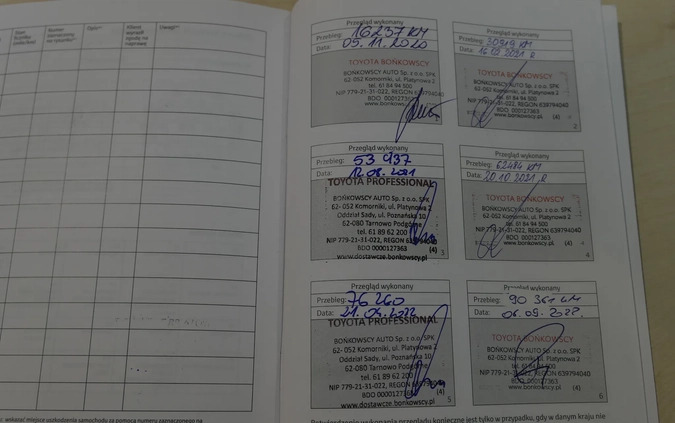 Stan
licznika
Numer
Opis**
Uwagi**
Przegląd wykonany
Przebieg: 16 237 KM
Data: 09.11.2020
TOYOTA BOŃKOWSCY
BOŃKOWSCY AUTO Sp. z o.o. SPK
62-052 Komorniki, ul. Platynowa 2
tel. 61 84 94 500
NIP 779-21-31-022, REGON 639794040
BDO 000127363
www.bonkowscy.pl
Przegląd wykonany
Przebieg: 30919 KM
Data: 16.02.2021 r
TOYOTA BOŃKOWSCY
BOŃKOWSCY AUTO Sp. z o.o. SPK
62-052 Komorniki, ul. Platynowa 2
tel. 61 84 94 500
NIP 779-21-31-022, REGON 639794040
BDO 000127363
www.bonkowscy.pl (4)
2
Przegląd wykonany
Przebieg: 53 937
Data: 12.08.2021
TOYOTA PROFESSIONAL
BOŃKOWSCY AUTO Sp. z o.o. SPK
62-052 Komorniki, ul. Platynowa 2
Oddział Sady, ul. Poznańska 10
62-080 Tarnowo Podgórne
tel. 61 89 62 200
NIP 779-21-31-022, REGON
BDO 0000127363 (4)
www.dostawcze.bonkowscy.pl
3
Przegląd wykonany
Przebieg: 62484 KM
Data: 20.10.2021 r
TOYOTA BOŃKOWSCY
BOŃKOWSCY AUTO Sp. z o.o. SPK
62-052 Komorniki, ul. Platynowa 2
tel. 61 84 94 500
NIP 779-21-31-022, REGON 639794040
BDO 000127363
www.bonkowscy.pl (4)
4
Przegląd wykonany
Przebieg: 76 260
Data: 21.04.2022
TOYOTA PROFESSIONAL
BOŃKOWSCY AUTO Sp. z o.o. SPK
62-052 Komorniki, ul. Platynowa 2
Oddział Sady, ul. Poznańska 10
62-080 Tarnowo Podgórne
tel. 61 89 62 200
NIP 779-21-31-022, REGON
BDO 0000127363 (4)
www.dostawcze.bonkowscy.pl
5
Przegląd wykonany
Przebieg: 90 361 KM
Data: 06.09.2022
TOYOTA BOŃKOWSCY
BOŃKOWSCY AUTO Sp. z o.o. SPK
62-052 Komorniki, ul. Platynowa 2
NIP 779-21-31-022, REGON 639794040
www.bonkowscy.pl
6
wskazać miejsce uszkodzenia samochodu za pomocą numeru zaznaczonego na
Potwierdzenie wykonania przeglądu konieczne jest tylko w przypadku, gdy w danym kraju nie